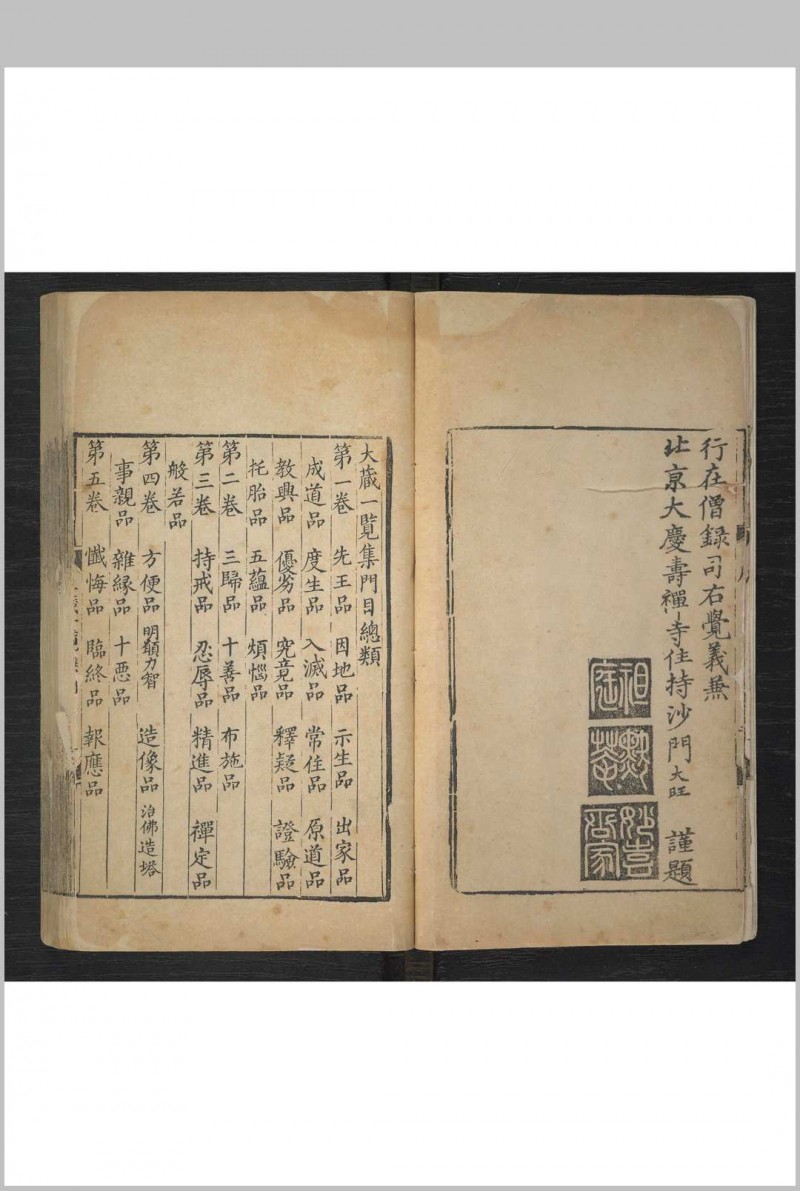 行在僧録司右覺義兼
北京大慶壽禪寺住持沙門大旺 謹題
大藏一覽集門目總類
第一卷 先王品 因地品 示生品 出家品
成道品 度生品 入滅品 常住品 原道品
教興品 優劣品 究竟品 釋疑品 證驗品
托胎品 五蘊品 煩惱品
第二卷 三歸品 十善品 布施品
第三卷 持戒品 忍辱品 精進品 禪定品
般若品
第四卷 方便品 明願力智 造像品 洎佛造塔
事親品 雜縁品 十惡品
第五卷 懺悔品 臨終品 報應品